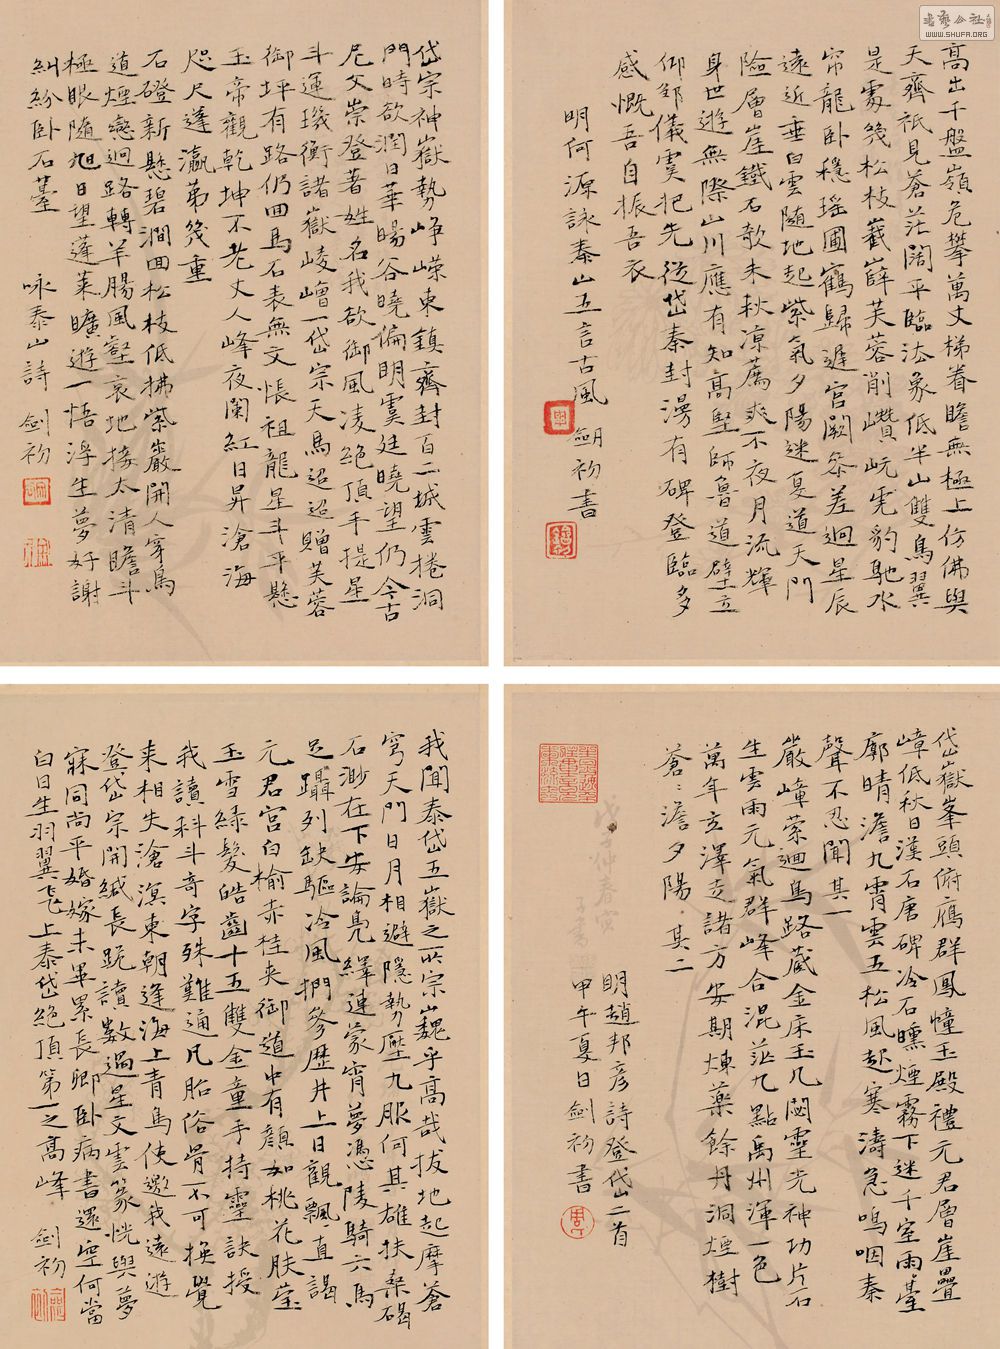 書藝公社
WWW.SHUFA.ORG
高出千盤嶺危攀萬丈梯眷瞻無極上仿佛與
天齊祇見蒼茫闊平臨法象低半山雙鳥翼
是處幾松枝巀嶭芙蓉削巑岏虎豹馳水
帘龍卧穩瑤圃鶴歸遲宮闕參差迥星辰
遠近垂白雲隨地起紫氣夕陽迷夏道天門
險層崖鐵石欹未秋涼薦爽不夜月流輝
身世遊無際山川應有知高堅師魯道壁立
仰鄒儀實把先從岱秦封漫有碑登臨多
感慨吾自振吾衣
明何源詠泰山五言古風 劍礽書
岱宗神嶽勢崢嶸東鎮齊封百二城雲捲洞
門時欲潤日華暘谷曉偏明虞廷曉望仍今古
尼父崇登著姓名我欲御風凌絕頂手提星
斗運璣衡諸嶽崚嶒一岱宗天馬迢迢贈芙蓉
御坪有路仍回馬石表無文悵祖龍星斗平懸
玉帝觀乾坤不老丈人峰夜闌紅日昇滄海
咫尺蓬瀛第幾重
石磴新懸碧澗回松枝低拂紫巖開人穿鳥
道煙巒迥路轉羊腸風壑哀地接太清瞻斗
極眼隨旭日望蓬萊曠遊一悟浮生夢好謝
糾紛卧石臺
咏泰山詩 劍礽
岱嶽峯頭俯雁群鳳幢玉殿禮元君層崖疊
嶂低秋日漢石唐碑冷石曛煙霧下迷千室雨臺
廓晴澹九霄雲五松風起寒濤急嗚咽秦
聲不忍聞其一
巖嶂縈迴鳥路藏金床玉几閟靈光神功片石
生雲雨元氣群峰合混茫九點禹州渾一色
萬年玄澤走諸方安期煉藥餘丹洞煙樹
蒼〻澹夕陽 其二
明趙邦彥詩登岱二首
甲午夏日劍礽書
我聞泰岱五嶽之所宗巍乎高哉拔地起摩蒼
穹天門日月相避隱勢壓九服何其雄扶桑碣
石渺在下安論鳧繹連蒙宵夢憑陵騎六馬
足躡列缺驅冷風捫參歷井上日觀飄直謁
元君宮白榆赤桂夾御道中有顏如桃花膚瑩
玉雪綠髮皓齒十五雙金童手持靈訣授
我讀科斗奇字殊難通凡胎俗骨不可換覺
來相失滄溟東朝逢海上青鳥使邀我遠遊
登岱宗開緘長跪讀數過星文雲篆恍與夢
寐同尚平婚嫁未畢累長卿卧病書還空何當
白日生羽翼飞上泰岱絕頂第一之高峰 劍礽